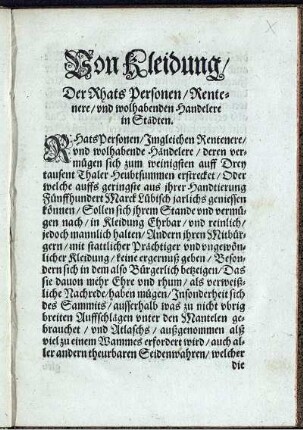 Von Kleidung/
Der Rhats Personen/Rente-
nere/vnd wolhabenden Handelere
in Städten.
RHats Personen/Imgleichen Rentenere/
vnd wolhabende Händelere/ deren ver-
mügen sich zum weinigsten auff Drey
tausent Thaler Heubtsummen erstrecket/Oder
welche auffs geringste aus jhrer Handtierung
Fünffhundert Marck Lübisch jarlichs geniessen
können/Sollen sich jhrem Stande vnd vermü-
gen nach/in Kleidung Ehrbar/vnd reinlich/
jedoch mannlich halten/Andern jhren Mitbür-
gern/mit stattlicher Prächtiger vnd vngewön-
licher Kleidung/keine ergernuß geben/Beson-
dern sich in dem also Bürgerlich betzeigen/Das
sie dauon mehr Ehre vnd rhum/als verweiß-
liche Nachrede/haben mügen/Insonderheit sich
des Sammits/ausserhalb was zu nicht vbrig
breiten Auffschlägen vnter den Mantelen ge-
brauchet/vnd Atlaschs/außgenommen alß
viel zu einem Wammes erfordert wird/auch al-
ler andern theurbaren Seidenwahren/welcher
die